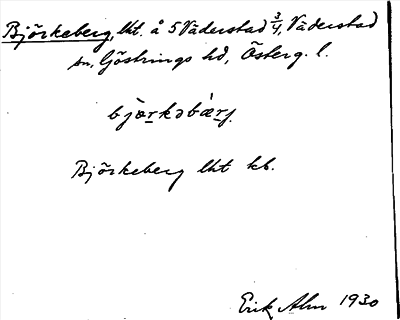 Björkeberg, lht. å 5 Väderstad 3/4, Väderstad
sn, Göstrings hd, Österg. l.
bjærkəbærj.
Björkeberg lht kb.
Erik Alm 1930